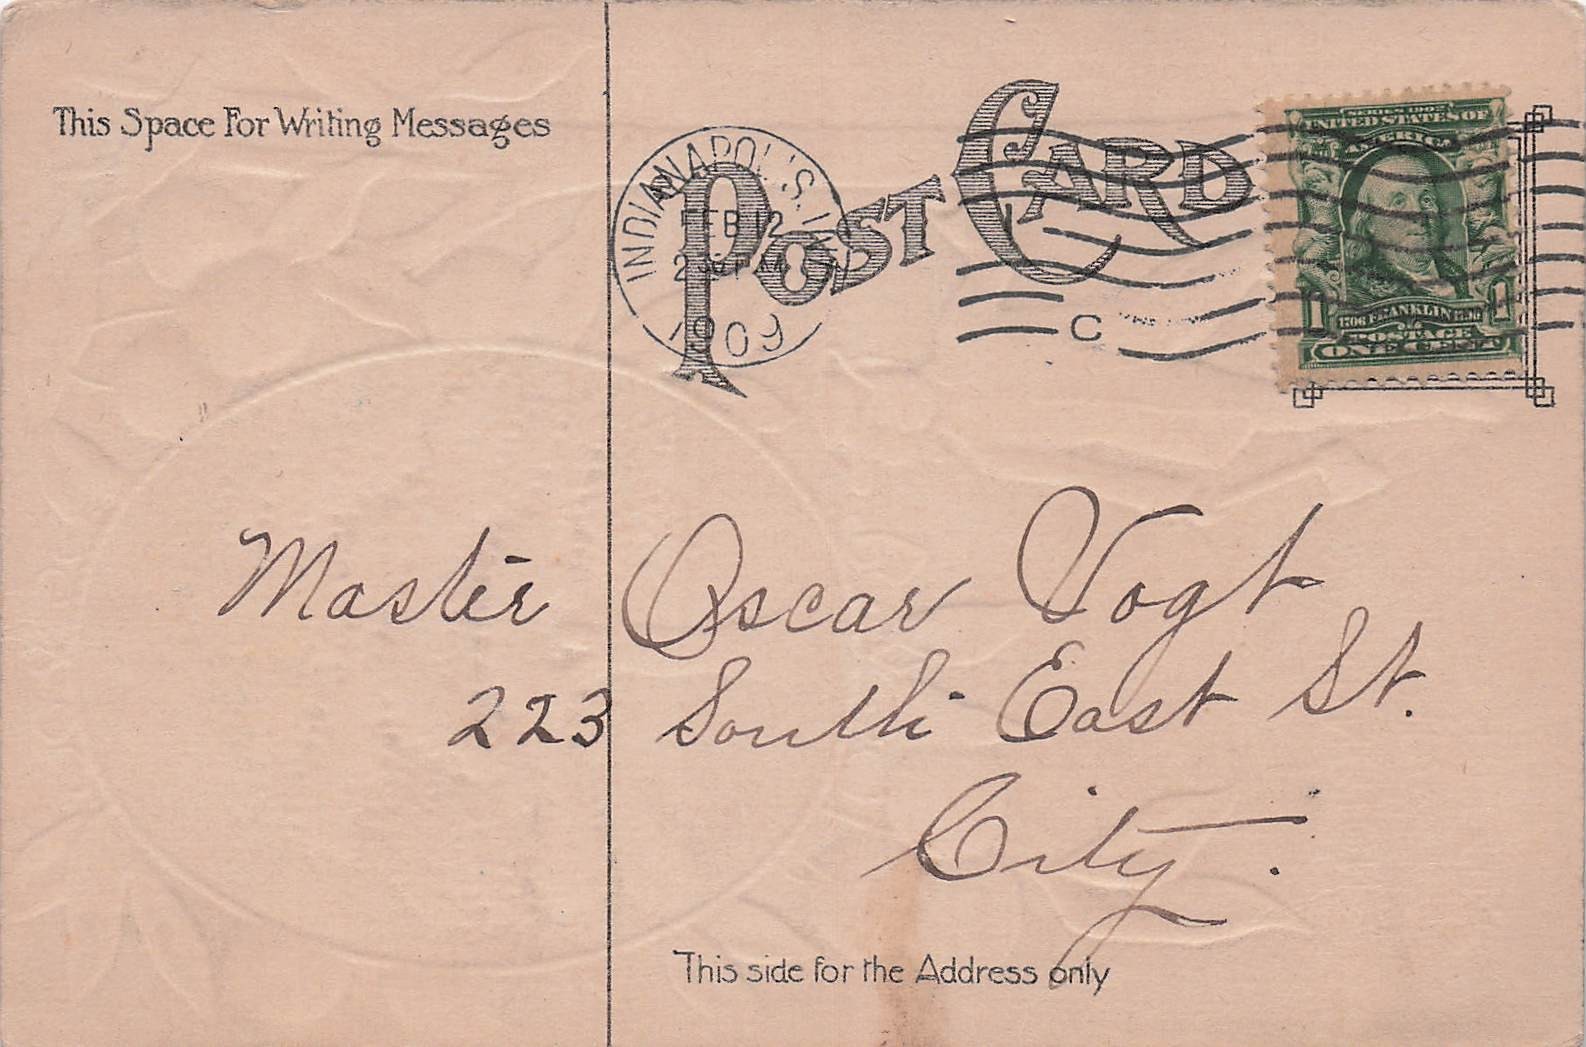 This Space For Writing Messages
POST CARD
INDIANAPOLIS, IND.
FEB 12
2 PM
1909
C
SERIES 1902
UNITED STATES OF
AMERICA
1 1
FRANKLIN
POSTAGE
ONE CENT
Master Oscar Vogt
223 South East St.
City.
This side for the Address only